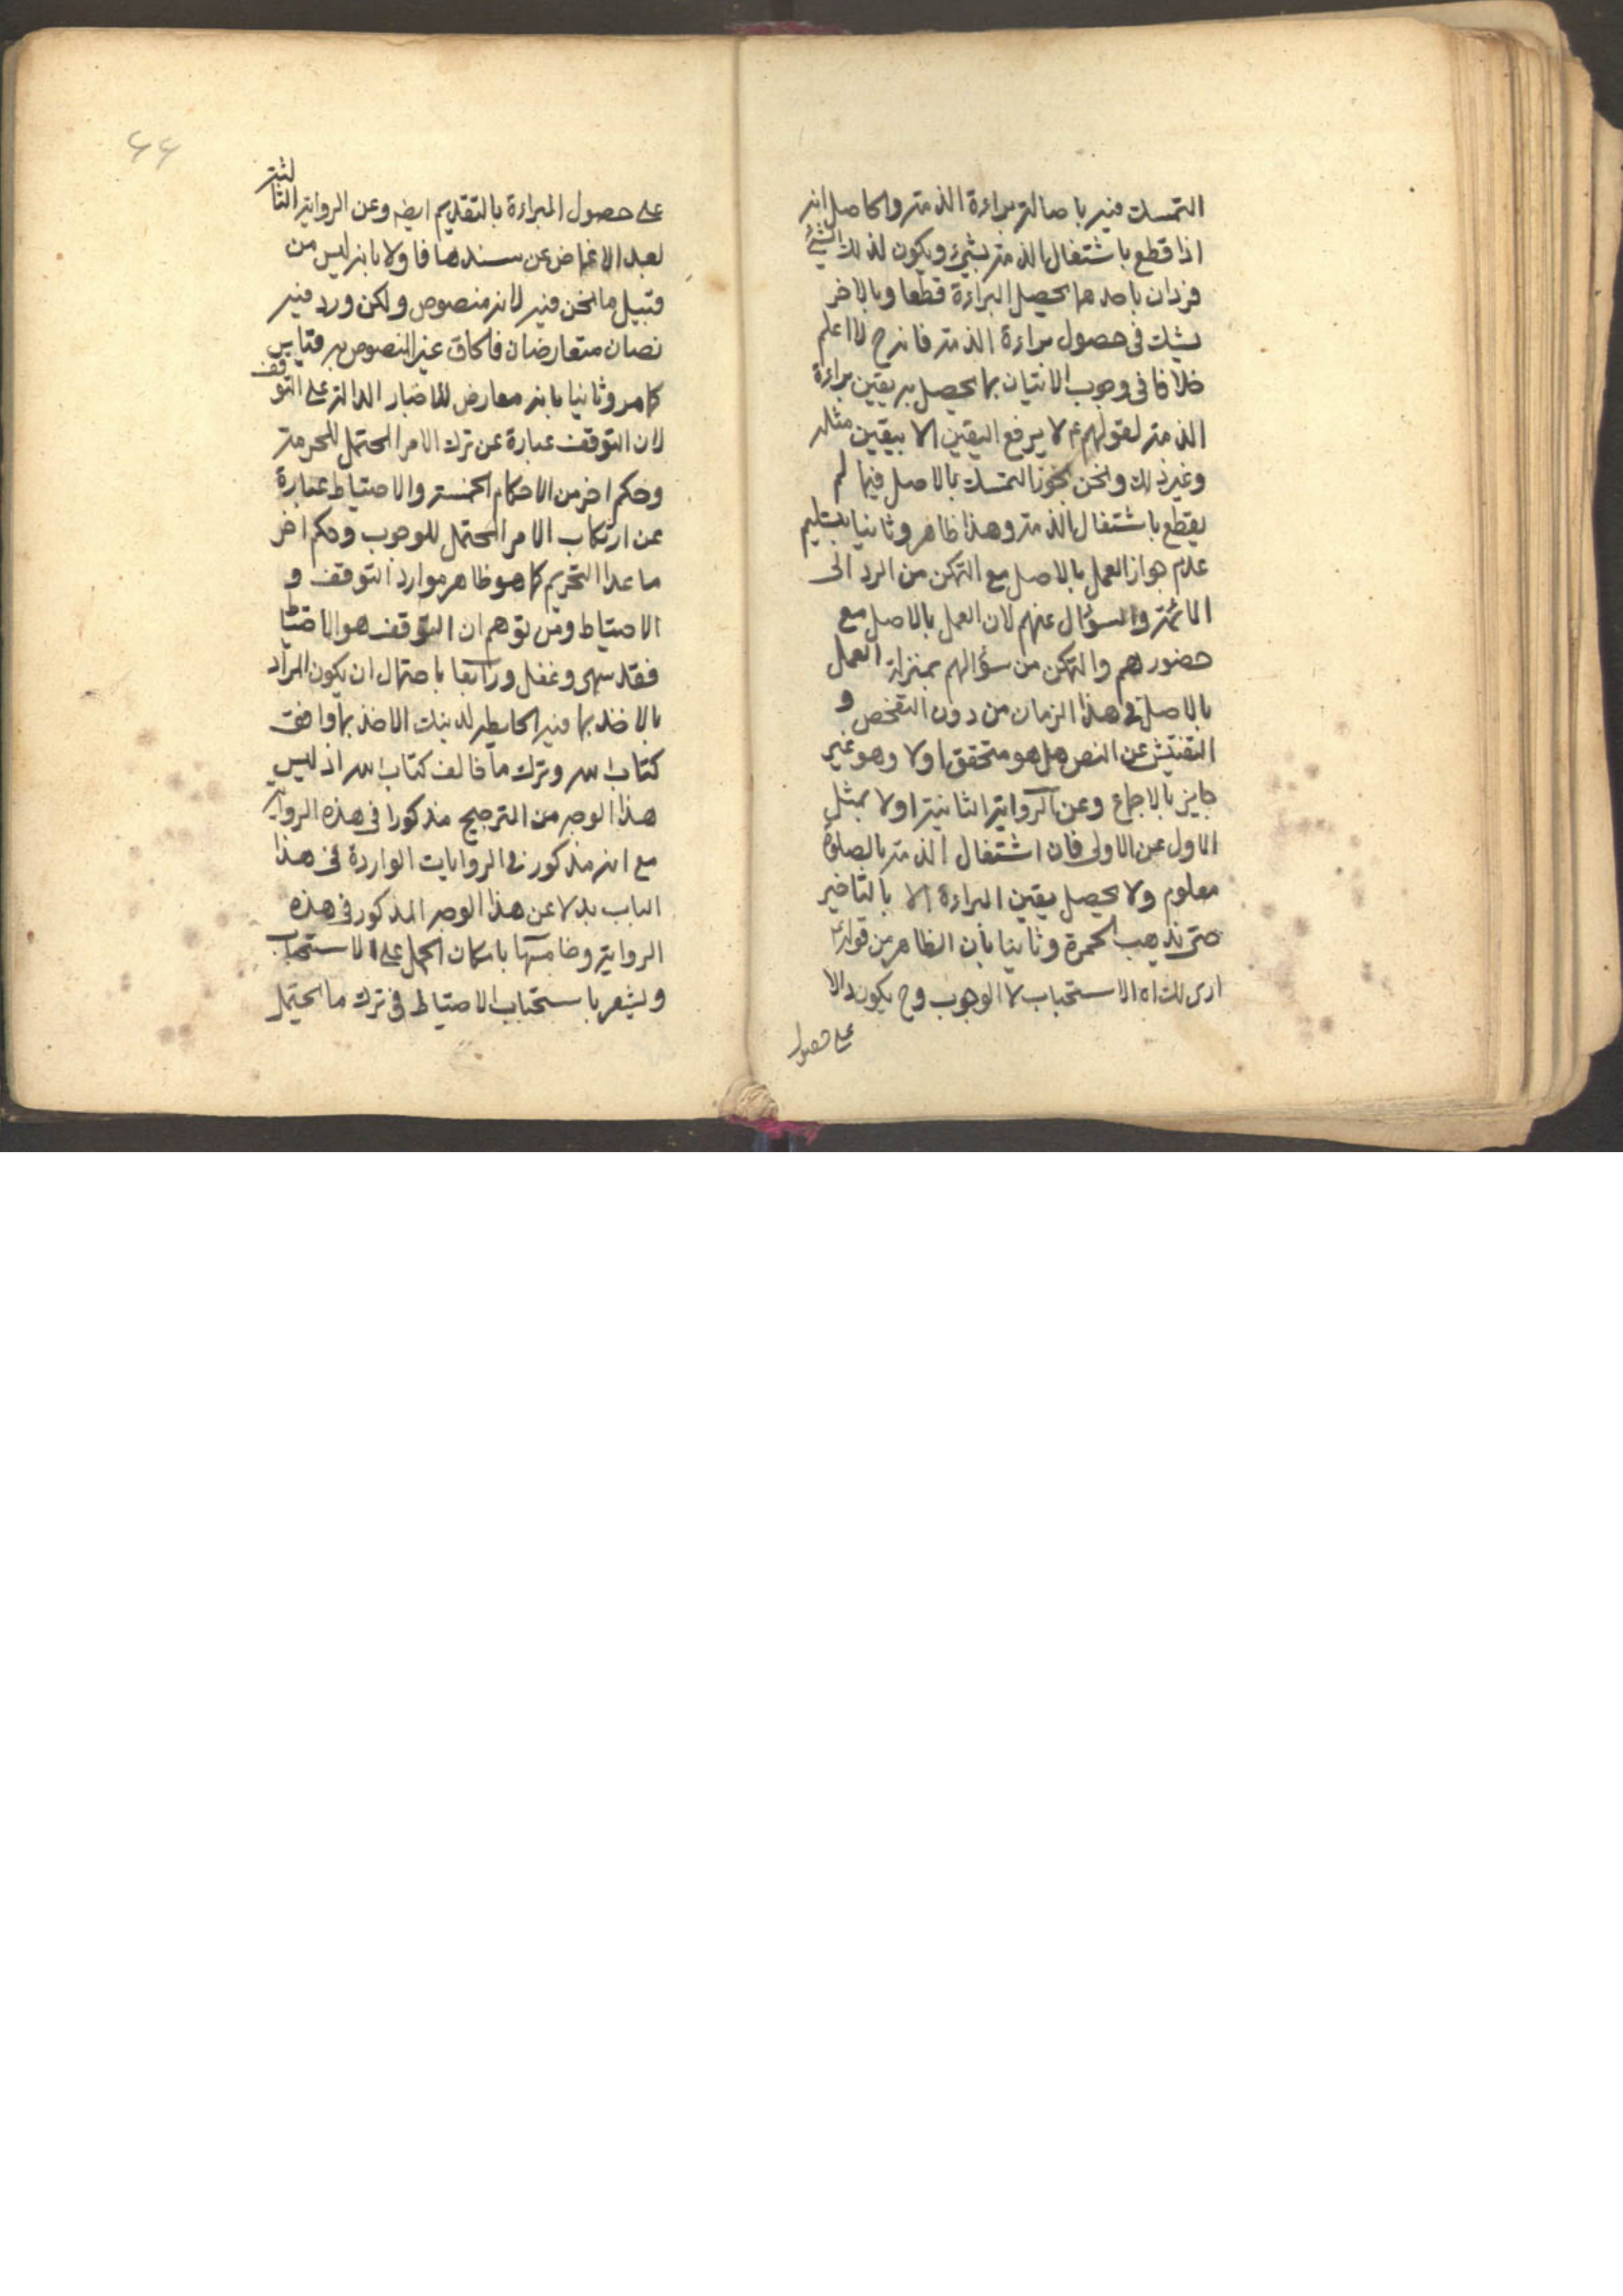 التمسك فيه باصالة براءة الذمة والحاصل انه
اذا قطع باشتغال الذمة بشيء ويكون لذلك الشيء
فردان باحدهما يحصل البراءة قطعا وبالاخر
يشك في حصول براءة الذمة فانه ح لا اعلم
خلافا في وجوب الاتيان بما يحصل به يقين براءة
الذمة لقولهم ع لا يرفع اليقين الا بيقين مثله
وغير ذلك ونحن نجوز التمسك بالاصل فيما لم
يقطع باشتغال الذمة وهذا ظاهر وثانيا بتسليم
عدم جواز العمل بالاصل مع التمكن من الرد الى
الائمة والسؤال عنهم لان العمل بالاصل مع
حضورهم والتمكن من سؤالهم بمنزلة العمل
بالاصل في هذا الزمان من دون التفحص و
التفتيش عن النص هل هو متحقق اولا وهو غير
جايز بالاجماع وعن الرواية الثانية اولا بمثل
الاول عن الاولى فان اشتغال الذمة بالصلوة
معلوم ولا يحصل يقين البراءة الا بالتاخير
حتى تذهب الحمرة وثانيا بأن الظاهر من قوله
ارى لك اه الاستحباب لا الوجوب وح يكون دالا
على حصول
٤٤
على حصول البراءة بالتقديم ايضه وعن الرواية الثالثة
بعد الاغماض عن سندها فاولا بانه ليس من
قبيل ما نحن فيه لانه منصوص ولكن ورد فيه
نصان متعارضان فالحاق غير المنصوص به قياس
كما مر وثانيا بانه معارض للاخبار الدالة على التوقف
لان التوقف عبارة عن ترك الامر المحتمل للحرمة
وحكم اخر من الاحكام الخمسة والاحتياط عبارة
عن ارتكاب الامر المحتمل للوجوب وحكم اخر
ما عدا التحريم كما هو ظاهر موارد التوقف و
الاحتياط ومن توهم ان التوقف هو الاحتياط
فقد سهى وغفل ورابعا باحتمال ان يكون المراد
بالاخذ بما فيه الحايطة لدينك الاخذ بما وافق
كتاب الله وترك ما خالف كتاب الله اذ ليس
هذا الوجه من الترجيح مذكورا في هذه الرواية
مع انه مذكور في الروايات الواردة في هذا
الباب بدلا عن هذا الوجه المذكور في هذه
الرواية وخامسها بامكان الحمل على الاستحباب
ويشعر باستحباب الاحتياط في ترك ما يحتمل